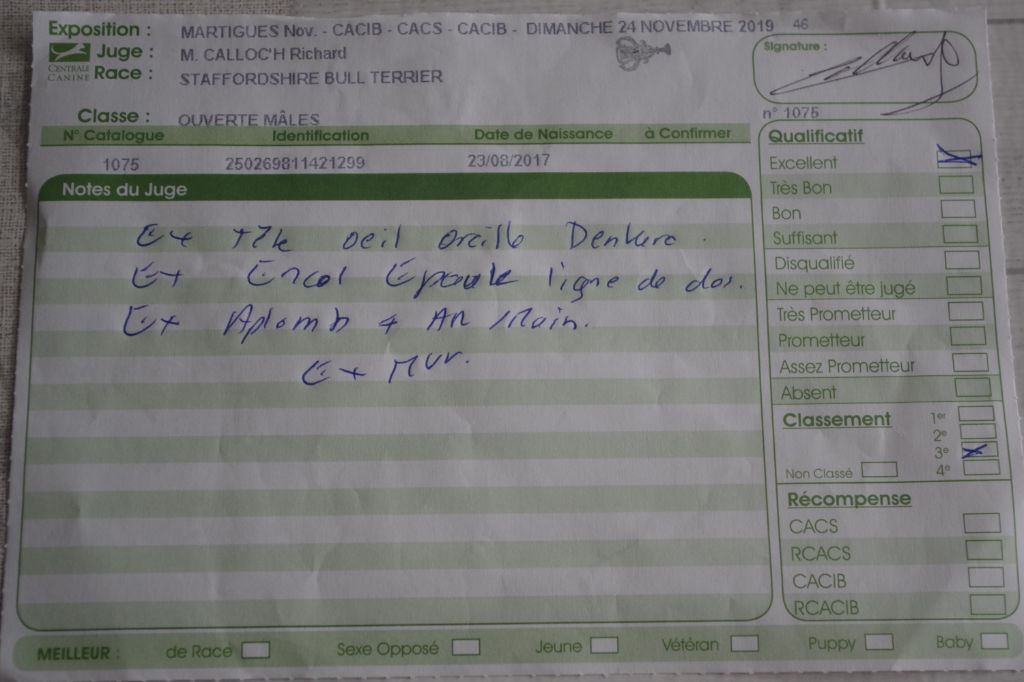 Exposition : MARTIGUES Nov. - CACIB - CACS - CACIB - DIMANCHE 24 NOVEMBRE 2019 46
Juge : M. CALLOC'H Richard
CENTRALE CANINE
Race : STAFFORDSHIRE BULL TERRIER
Classe : OUVERTE MÂLES
Signature :
n° 1075
N° Catalogue Identification Date de Naissance à Confirmer
1075 250269811421299 23/08/2017
Notes du Juge
Ex tête oeil oreille Denture.
Ex Encol Epaule ligne de dos.
Ex Aplomb
Ex
Qualificatif
Excellent
Très Bon
Bon
Suffisant
Disqualifié
Ne peut être jugé
Très Prometteur
Prometteur
Assez Prometteur
Absent
Classement
1er
2e
3e
4e
Non Classé
Récompense
CACS
RCACS
CACIB
RCACIB
MEILLEUR : de Race Sexe Opposé Jeune Vétéran Puppy Baby